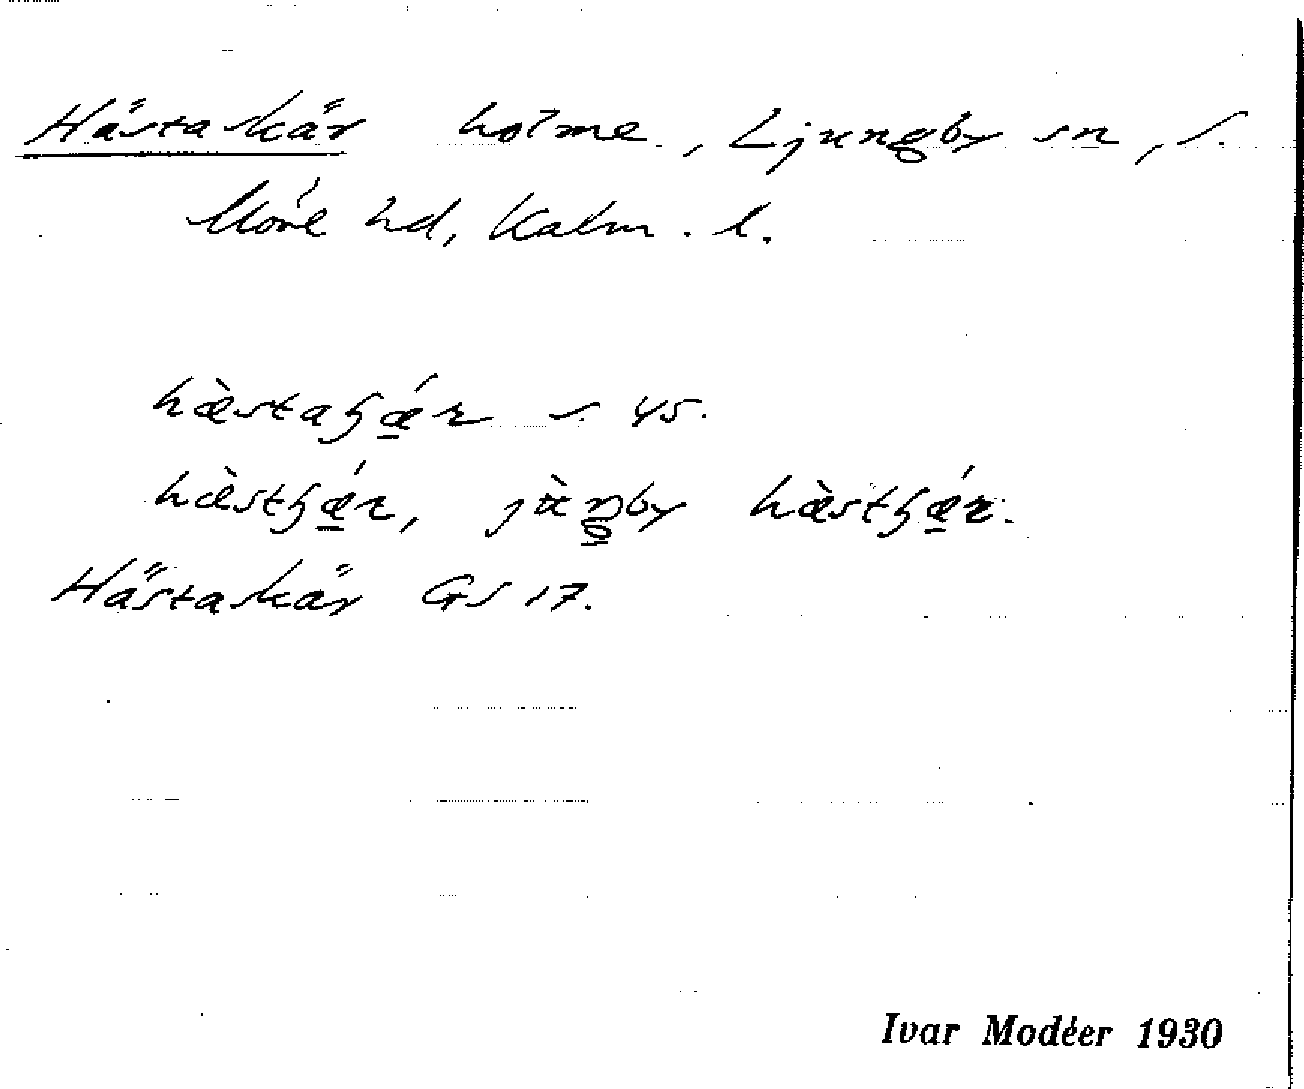 Hästaskär holme., Ljungby sn, S.
Möre hd, Kalm. l.
hæ̀staʃǽ̠r s. 45.
hæ̀stʃǽ̠r, jɯ̀ŋby hæ̀stʃǽ̠r.
Hästaskär GS 17.
Ivar Modéer 1930